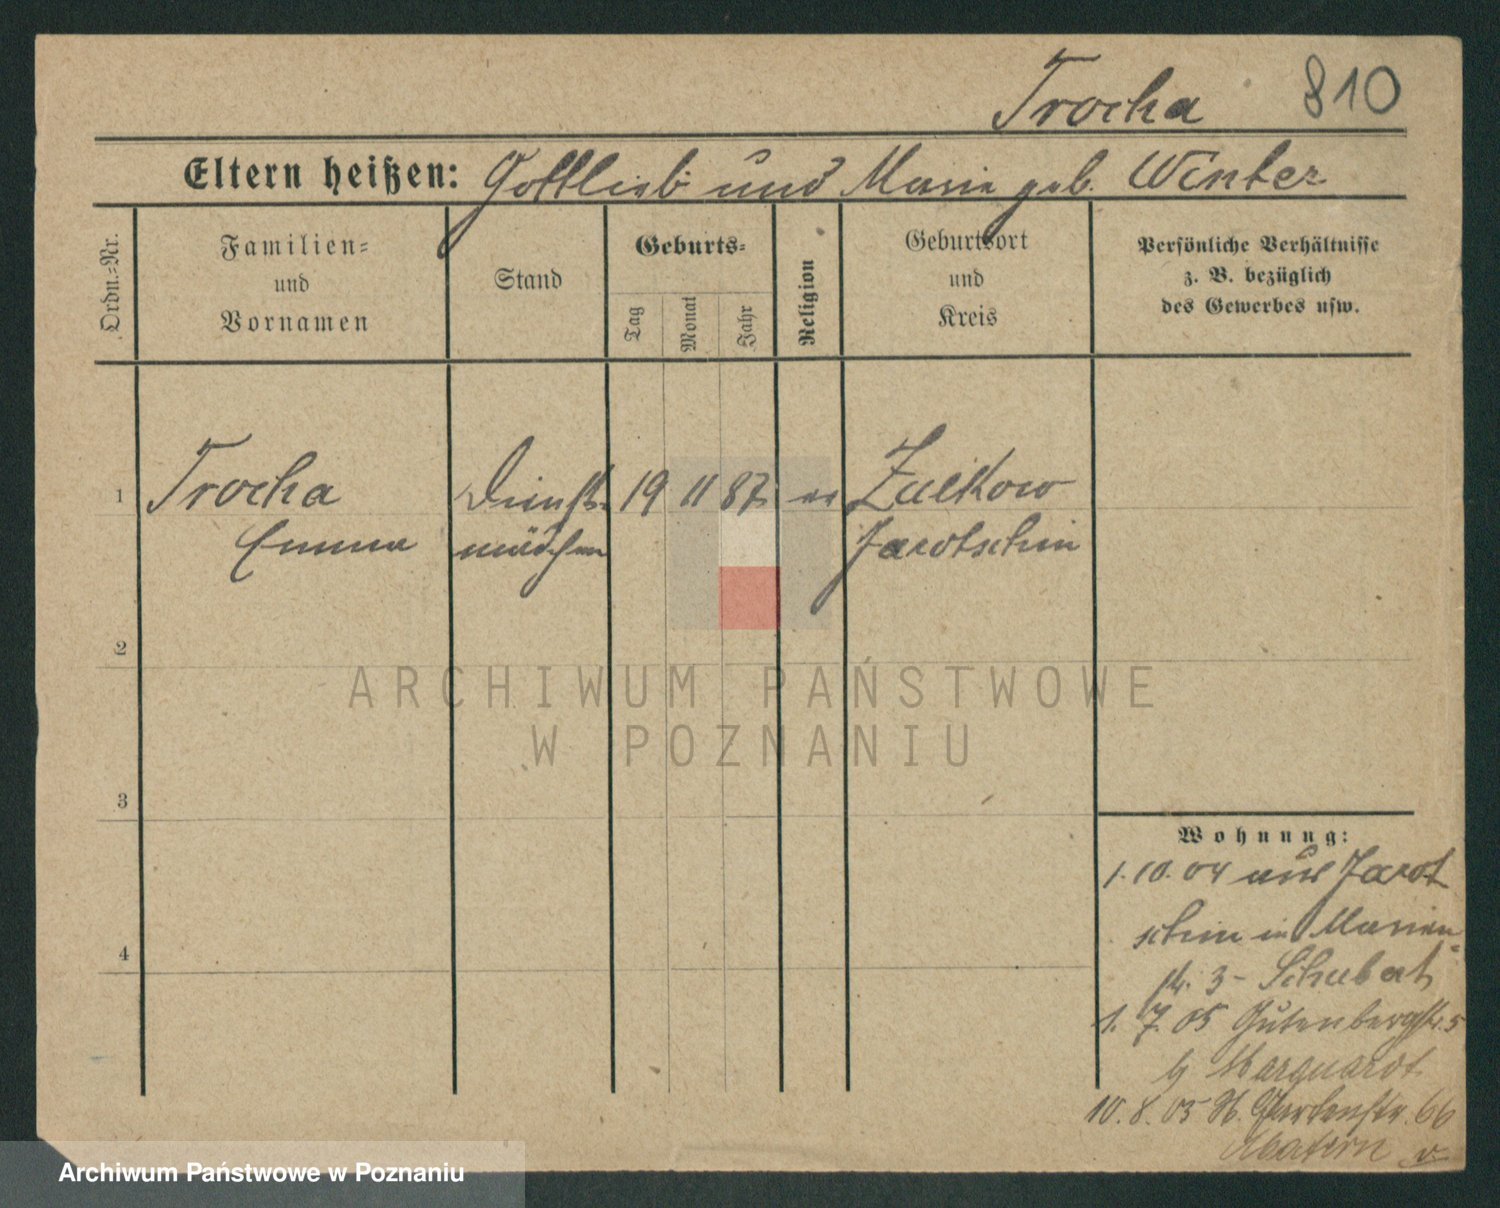 Trocha 810
Eltern heißen: Gottlieb und Marie geb. Winter
Ordn.=Nr.
Familien=
und
Vornamen
Stand
Geburts=
Tag
Monat
Jahr
Religion
Geburtsort
und
Kreis
Persönliche Verhältnisse
z. B. bezüglich
des Gewerbes usw.
1 Trocha Dienst= 19 11 87 ev Zulkow
Emma mädchen Jarotschin
2
3
4
Wohnung:
1.10.04 aus Jarot
schin in Marien=
str. 3 - Schubert
1.7.05 Gutenbergstr. 5
b Marquardt
10.8.05 Gartenstr. 66
ARCHIWUM PAŃSTWOWE
W POZNANIU
Archiwum Państwowe w Poznaniu